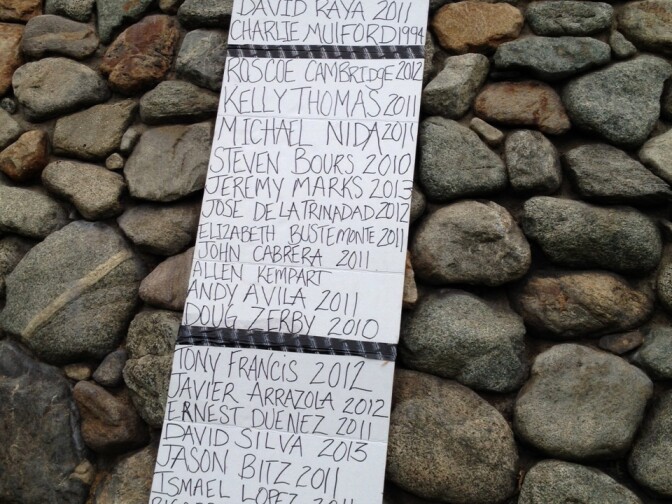 DAVID RAYA 2011
CHARLIE MULFORD 1994
ROSCOE CAMBRIDGE 2012
KELLY THOMAS 2011
MICHAEL NIDA 2011
STEVEN BOURS 2010
JEREMY MARKS 2013
JOSE DE LA TRINADAD 2012
ELIZABETH BUSTEMONTE 2011
JOHN CABRERA 2011
ALLEN KEMPART
ANDY AVILA 2011
DOUG ZERBY 2010
TONY FRANCIS 2012
JAVIER ARRAZOLA 2012
ERNEST DUENEZ 2011
DAVID SILVA 2013
JASON BITZ 2011
ISMAEL LOPEZ 2011